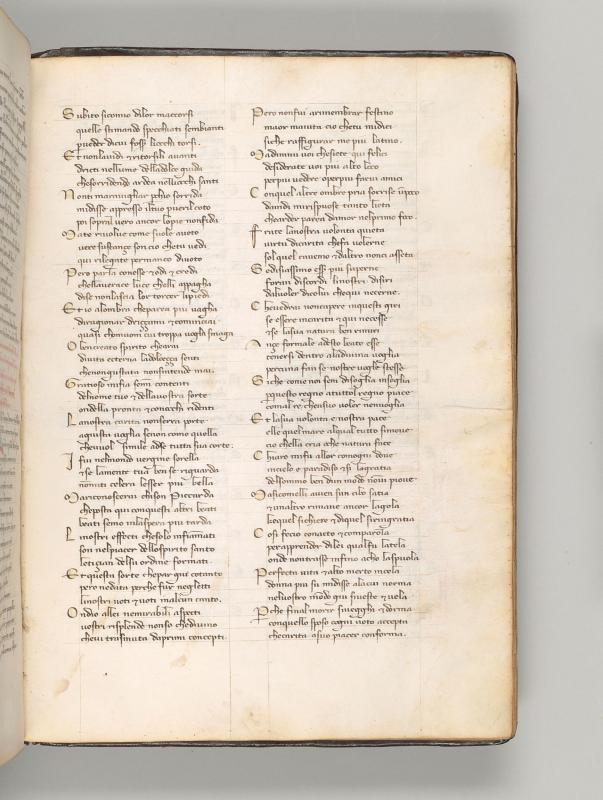 Subito sicomio dilor maccorsi
quelle stimando specchiati sembianti
p veder dicui fosser liocchi torsi
Et nonluvidi et ritorsili avanti
dritti nellume della dolce guida
chesorridendo ardea nelliocchi santi
Nonti maravigliar pchio sorrida
midisse appresso iltuo pueril coto
poi sopral vero ancor lopie nonfida
Ma te rivolve come suole avoto
vere sustanze son cio chetu vedi
qui rilegate permanco divoto
Pero parla conesse et odi et credi
chellaverace luce chelli appagha
dise nonlascia lor torcer lipiedi
Et io alombra cheparea piu vagha
diragionar drizzami et cominciai
quasi chomuom cui troppa voglia smaga
O bencreato spirito chearai
divita etterna ladolcezza senti
chenongustata nonsintende mai
Gratioso mifia semi contenti
delnome tuo et dellavostra sorte
ondella pronta et conocchi ridenti
La nostra carita nonserra porte
agiusta voglia senon come quella
chevuol simile adse tutta sua corte
I fui nelmondo vergine sorella
et se lamente tua ben se riguarda
nonmiti celera lesser piu bella
Mariconoscerai chison Piccarda
cheposta qui conquesti altri beati
beati semo inlaspera piu tarda
Li nostri effecti chesolo infiamati
son nelpiacer dellospirito santo
letitian delsu ordine formati
Et questa sorte chepar giu cotanto
pero nedata perche fur negletti
linostri voti et voti inalcun canto
Ondio allei nemirabili aspecti
vostri risplende nonso chedivino
chevi trasmuta daprimi concepti
Pero nonfui arimembrar festino
maor maiuta cio chetu midici
siche raffigurar me piu latino
Madimmi voi chesiete qui felici
desidrate voi piu alto loco
perpiu vedere operpiu farvi amici
Conquel altre ombre pria sorrise unpoco
dandi mirispuose tanto lieta
chearder parea damor nelprimo foco
Frate lanostra volonta quieta
virtu dicarita chefa volerne
sol quel cavemo et daltro nonci asseta
Sedisiassimo esser piu superne
foran discordi linostri disiri
dalvoler dicolui chequi necerne
Chevedrai noncapere inquesti giri
se essere incarita et qui necesse
et se lasua natura ben rimiri
Anze formale adesto beato esse
tenersi dentro aladivina voglia
percuna fansi nostre vogle stesse
Siche come noi sem disoglia insoglia
pquesto regno atuttol regno piace
comal re chensuo voler neinvoglia
Et lasua volontate e nostra pace
elle quelmare alqual tutto simove
cio chella cria oche natura face
Chiaro mifu allor comogni dove
incielo e paradiso et si lagratia
delsommo ben dun modo nonvi piove
Masicomelli avien sun cibo satia
et unaltro rimane ancor lagola
chequel sichiere et diquel siringratia
Cosi fecio conacto et comparola
perapprender dalei qualfu latela
onde nontrasse infino acho laspuola
Perfecta vita et alto merto inciela
donna piu su midisse alacui norma
nelvostro mondo giu siveste et vela
Pche finalmorir sivegghi et dorma
conquello sposo cogni voto accepta
checarita asuo piacer conforma